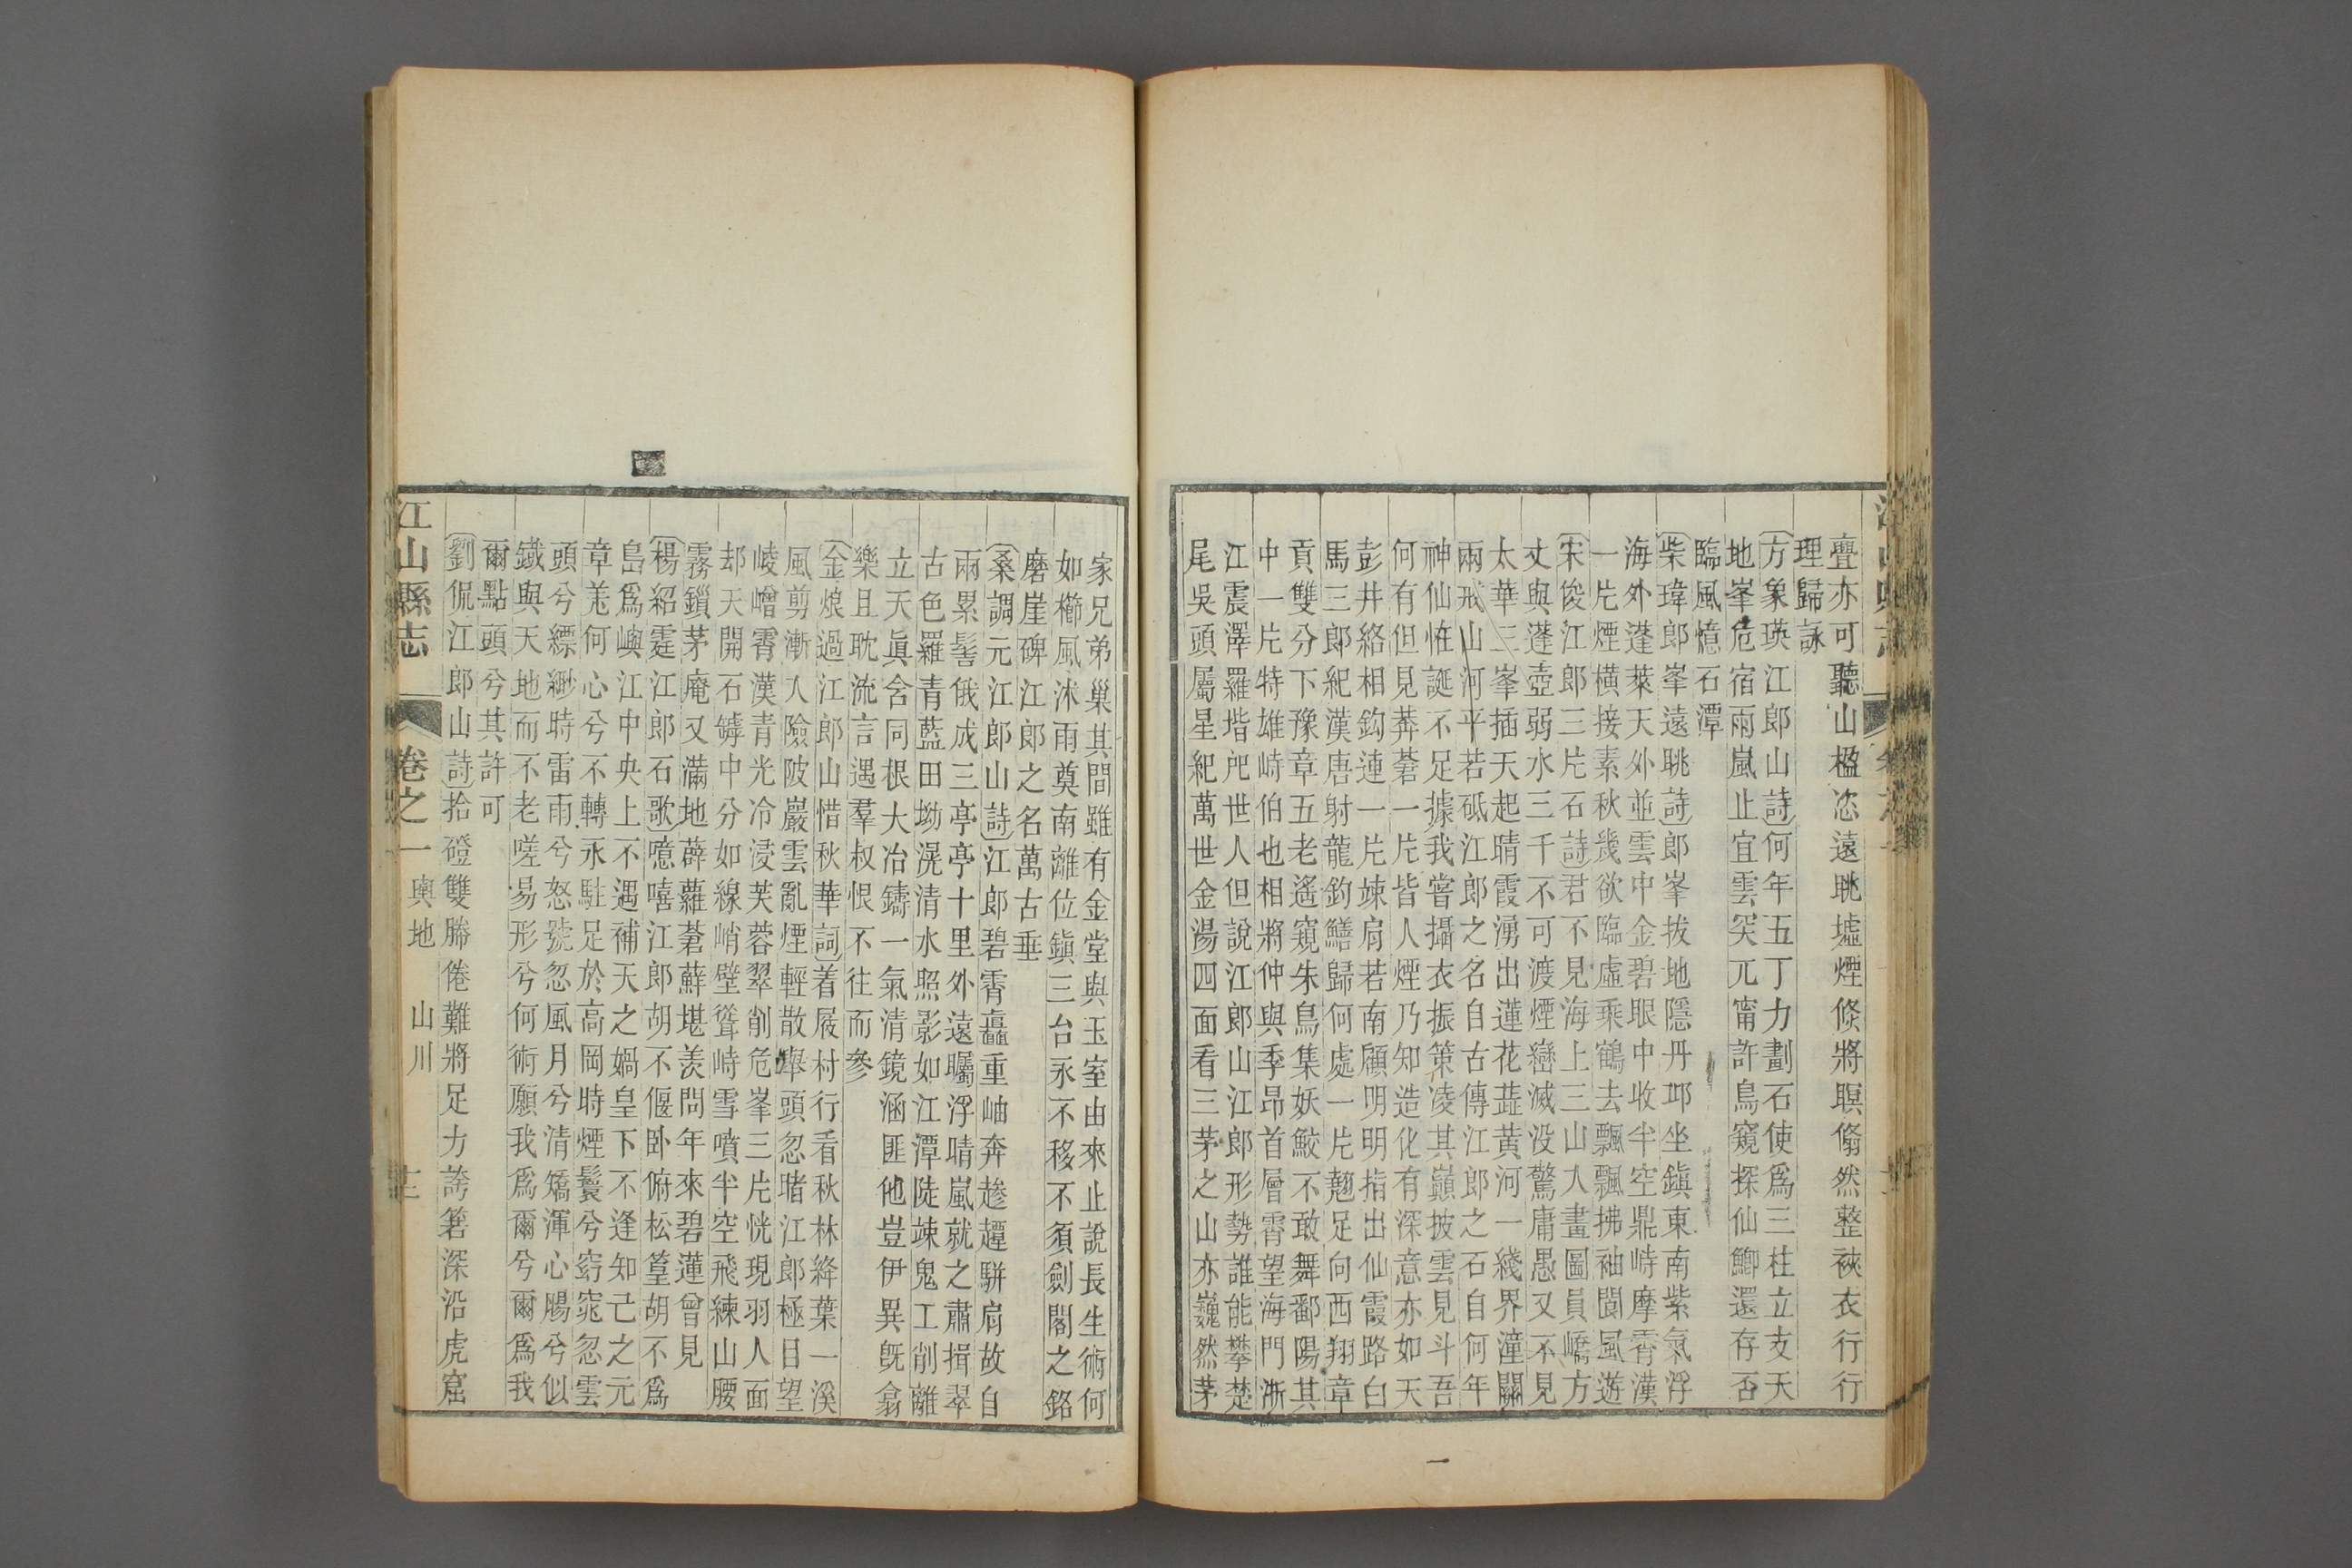 亹亦可聽山楹恣遠眺墟煙倏將瞑翛然整裌衣行行
理歸詠
方象瑛江郎山詩何年五丁力劃石使爲三柱立支天
地峯危宿雨嵐止宜雲突兀甯許鳥窺探仙鯽還存否
臨風憶石潭
柴瑋郎峯遠眺詩郎峯拔地隱丹邛坐鎭東南紫氣浮
海外蓬萊天外並雲中金碧眼中收半空鼎峙摩霄漢
一片煙橫接素秋幾欲臨虛乘鶴去飄飄拂袖閬風遊
宋俊江郎三片石詩君不見海上三山人畫圖員嶠方
丈與蓬壺弱水三千不可渡煙巒滅没驚庸愚又不見
太華三峯插天起晴霞湧出蓮花蘂黃河一綫界潼關
兩戒山河平若砥江郎之名自古傳江郎之石自何年
神仙恠誕不足據我嘗攝衣振策凌其巔披雲見斗吾
何有但見莽蒼一片皆人煙乃知造化有深意亦如天
彭井絡相鈎連一片竦肩若南顧明明指出仙霞路白
馬三郎紀漢唐射龍鈞鱔歸何處一片翹足向西翔章
貢雙分下豫章五老遙窺朱鳥集妖鮫不敢舞鄱陽其
中一片特雄峙伯也相將仲與季昂首層霄望海門浙
江震澤羅堦戺世人但說江郎山江郎形勢誰能攀楚
尾吳頭屬星紀萬世金湯四面看三茅之山亦巍然茅
家兄弟巢其間雖有金堂與玉室由來止說長生術何
如櫛風沐雨奠南離位鎭三台永不移不須劍閣之銘
磨崖碑江郎之名萬古垂
桑調元江郎山詩江郎碧霄矗重岫奔趂趲駢肩故自
兩累髻俄成三亭亭十里外遠矚浮晴嵐就之肅揖翠
古色羅青藍田坳滉清水照影如江潭陡竦鬼工削離
立天眞含同根大冶鑄一氣清鏡涵匪他豈伊異旣翕
樂且耽流言遇羣叔恨不往而參
金烺過江郎山惜秋華詞着屐村行看秋林絳葉一溪
風剪漸人險陂巖雲亂煙輕散舉頭忽睹江郎極日望
崚嶒霄漢青光冷浸芙蓉翠削危峯三片恍現羽人面
却天開石罅中分如線峭壁聳峙雪噴半空飛練山腰
霧鎖茅庵又滿地薜蘿蒼蘚堪羨問年來碧蓮曾見
楊紹霆江郎石歌噫嘻江郎胡不偃卧俯松篁胡不爲
島爲嶼江中央上不遇補天之媧皇下不逢知己之元
章羗何心兮不轉永駐足於高岡時煙鬟兮窈窕忽雲
頭兮縹緲時雷雨兮怒號忽風月兮清矯渾心腸兮似
鐵與天地而不老嗟易形兮何術願我爲爾兮爾爲我
爾點頭兮其許可
劉侃江郎山詩拾磴雙騰倦難將足力誇箬深沿虎窟
江山縣志
卷之一
輿地
山川